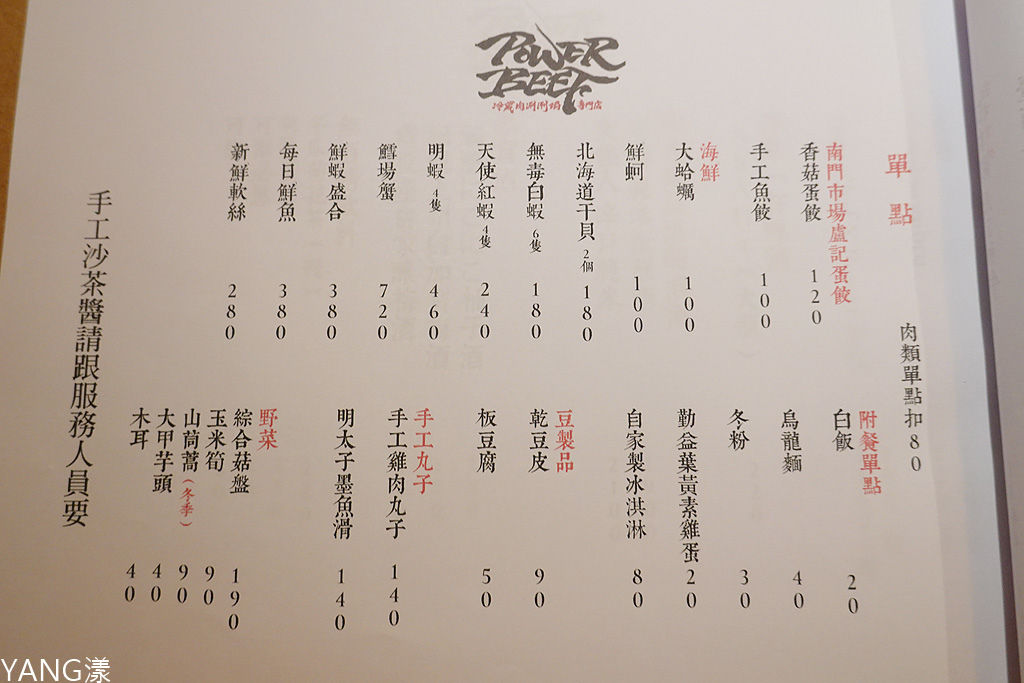 POWER
BEEF
冷藏肉涮涮鍋專門店
單點
肉類單點扣80
南門市場盧記蛋餃
香菇蛋餃 120
手工魚餃 100
海鮮
大蛤蠣 100
鮮蚵 100
北海道干貝 2個 180
無毒白蝦 6隻 180
天使紅蝦 4隻 240
明蝦 4隻 460
鱈場蟹 720
鮮蝦盛合 380
每日鮮魚 380
新鮮軟絲 280
附餐單點
白飯 20
烏龍麵 40
冬粉 30
勤益葉黃素雞蛋 20
自家製冰淇淋 80
豆製品
乾豆皮 90
板豆腐 50
手工丸子
手工雞肉丸子 140
明太子墨魚滑 140
野菜
綜合菇盤 190
玉米筍 90
山茼蒿(冬季) 90
大甲芋頭 40
木耳 40
手工沙茶醬請跟服務人員要
YANG漾